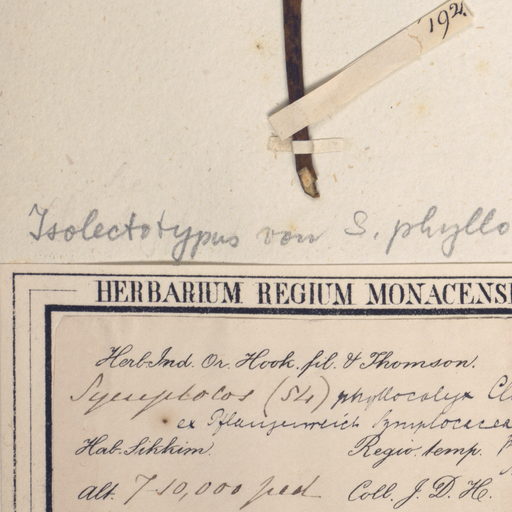 192.
Isolectotypus von S. phyllo
HERBARIUM REGIUM MONACENS
Herb. Ind. Or. Hook. fil. & Thomson.
Symplocos (54) phyllocalyx Cl
ex Pflanzenreich Symplocacea
Hab. Sikkim. Regio. temp.
Alt. 7-10,000 ped Coll. J. D. H.